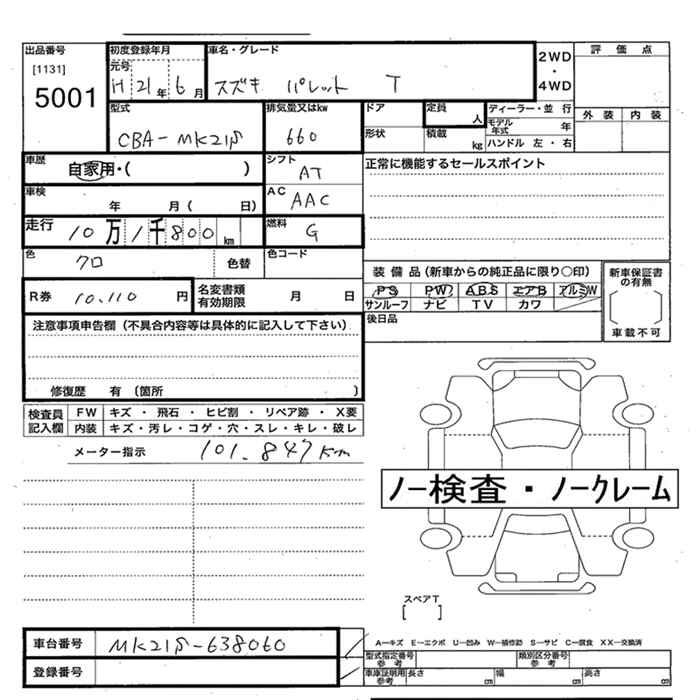 出品番号 初度登録年月 車名・グレード 2WD・4WD 評価点
[1131] 元号
5001 H 21年 6月 スズキ パレット T
型式 排気量又はkw ドア 定員 人 ディーラー・並行 外装 内装
CBA-MK21S 660 形状 積載 kg モデル年式 年
ハンドル 左・右
車歴 自家用・( ) シフト AT 正常に機能するセールスポイント
車検 年 月( 日) AC AAC
走行 10万 1千 800 km 燃料 G
色 クロ 色替 色コード
装備品(新車からの純正品に限り○印) 新車保証書の有無
R券 10,110 円 名変書類有効期限 月 日 PS PW ABS エアB アルミW
サンルーフ ナビ TV カワ
車載不可
注意事項申告欄(不具合内容等は具体的に記入して下さい) 後日品
修復歴 有 (箇所 )
検査員記入欄 FW キズ・飛石・ヒビ割・リペア跡・X要
内装 キズ・汚レ・コゲ・穴・スレ・キレ・破レ
メーター指示 101,847km
ノー検査・ノークレーム
スペアT
[ ]
車台番号 MK21S-638060 A-キズ E-エクボ U-凹み W-補修跡 S-サビ C-腐食 XX-交換済
型式指定番号 参考 類別区分番号 参考
登録番号 車庫証明用 参考 長さ cm 幅 cm 高さ cm